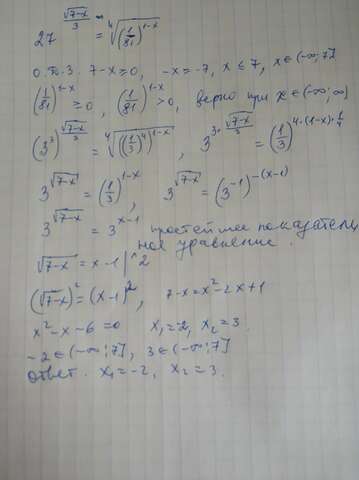 27^(√(7-x)/3) = ⁴√((1/81)^(1-x))
О.Д.З. 7-x≥0, -x≥-7, x≤7, x∈(-∞;7]
(1/81)^(1-x) ≥0, (1/81)^(1-x) >0, верно при x∈(-∞;∞)
(3³)^(√(7-x)/3) = ⁴√(((1/3)⁴)^(1-x)), 3^(3·√(7-x)/3) = (1/3)^(4·(1-x)·1/4)
3^√(7-x) = (1/3)^(1-x), 3^√(7-x) = (3⁻¹)^(-(x-1))
3^√(7-x) = 3^(x-1) простейшее показатель
ное уравнение.
√(7-x) = x-1 |^2
(√(7-x))² = (x-1)², 7-x=x²-2x+1
x²-x-6=0 x₁=-2, x₂=3.
-2∈(-∞;7], 3∈(-∞;7]
Ответ. x₁=-2, x₂=3.